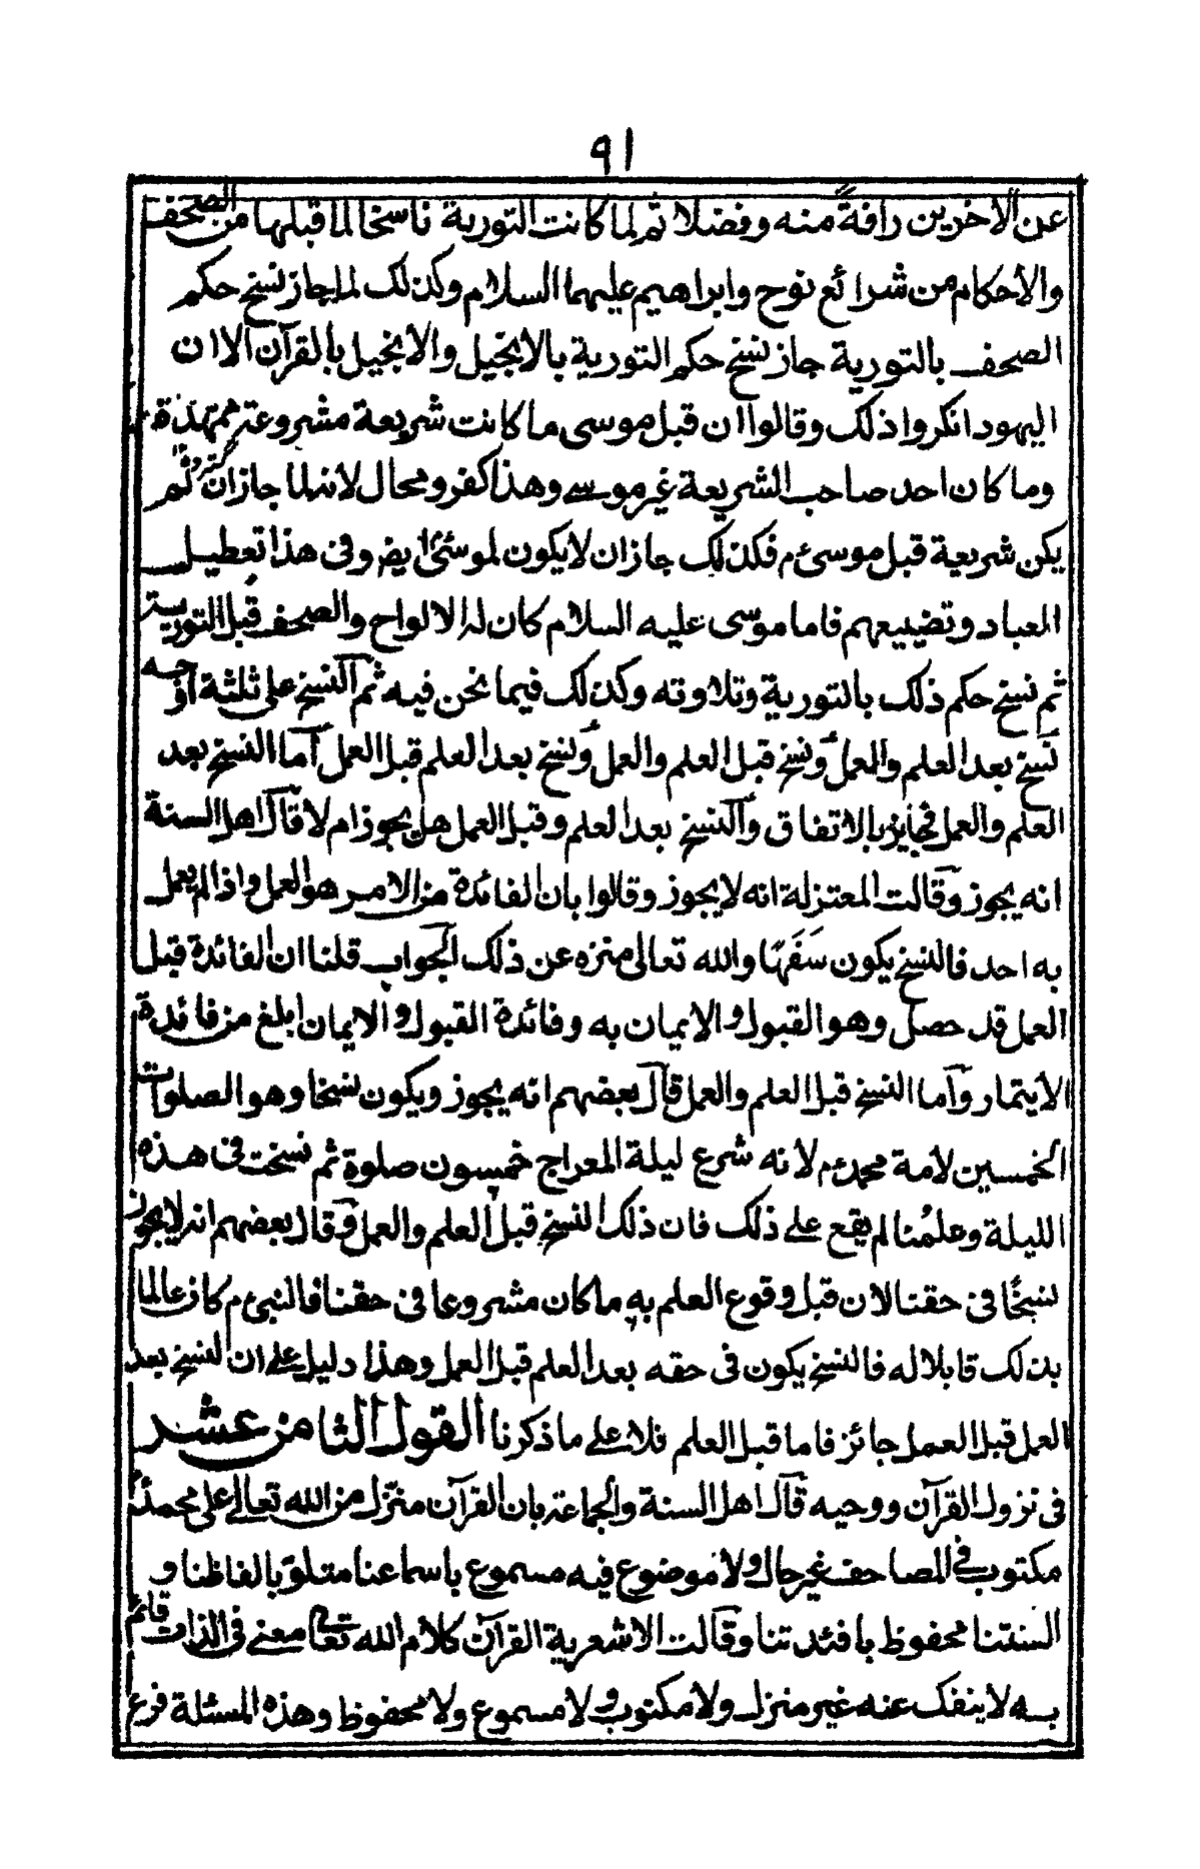 ٩١
عن الأخرين رافةً منه وفضلا ثم لما كانت التورية ناسخا لما قبلها من الصحف
والأحكام من شرائع نوح وابراهيم عليهما السلام وكذلك لما جاز نسخ حكم
الصحف بالتورية جاز نسخ حكم التورية بالانجيل والانجيل بالقرآن الا ان
اليهود انكروا ذلك وقالوا ان قبل موسى ما كانت شريعة مشروعة
وما كان احد صاحب الشريعة غير موسى وهذا كفر ومحال لانه لما جاز ان لم
يكن شريعة قبل موسىٰ ع م فكذلك جاز ان لا يكون لموسىٰ ايض وفى هذا تعطيل
العباد وتضييعهم فاما موسى عليه السلام كان له الالواح والصحف قبل التورية
ثم نسخ حكم ذلك بالتورية وتلاوته وكذلك فيما نحن فيه ثم النسخ على ثلثة اوجه
نسخ بعد العلم والعمل ونسخ قبل العلم والعمل ونسخ بعد العلم قبل العمل اما النسخ بعد
العلم والعمل فجايز بالاتفاق والنسخ بعد العلم وقبل العمل هل يجوز ام لا قال اهل السنة
انه يجوز وقالت المعتزلة انه لا يجوز وقالوا بان الفائدة من الامر هو العمل واذا لم يعمل
به احد فالنسخ يكون سَفَهًا والله تعالى منزه عن ذلك الجواب قلنا ان الفائدة قبل
العمل قد حصل وهو القبول والايمان به وفائدة القبول والايمان ابلغ من فائدة
الايتمار واما النسخ قبل العلم والعمل قال بعضهم انه يجوز ويكون نسخا وهو الصلوات
الخمسين لامة محمد ع م لانه شرع ليلة المعراج خمسون صلوة ثم نسخت فى هذه
الليلة وعلمُنا لم يقع على ذلك فان ذلك النسخ قبل العلم والعمل وقال بعضهم انه لا يجوز
نسخًا فى حقنا لان قبل وقوع العلم به ما كان مشروعا فى حقنا فالنبى ع م كان عالما
بذلك قابلا له فالنسخ يكون فى حقه بعد العلم قبل العمل وهذا دليل على ان النسخ بعد
العمل قبل العمل جائز فاما قبل العلم فلا على ما ذكرنا القول الثامن عشر
فى نزول القرآن ووحيه قال اهل السنة والجماعة بان القرآن منزل من الله تعالى على محمد
مكتوب فى المصاحف غير حال ولا موضوع فيه مسموع باسماعنا متلو بالفاظنا و
السنتنا محفوظ بافئدتنا وقالت الاشعرية القرآن كلام الله تعالى معنى فى الذات قائم
به لا ينفك عنه غير منزل ولا مكتوب ولا مسموع ولا محفوظ وهذه المسئلة فرع